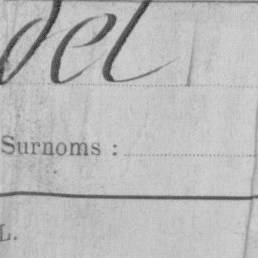 del
Surnoms :
L.